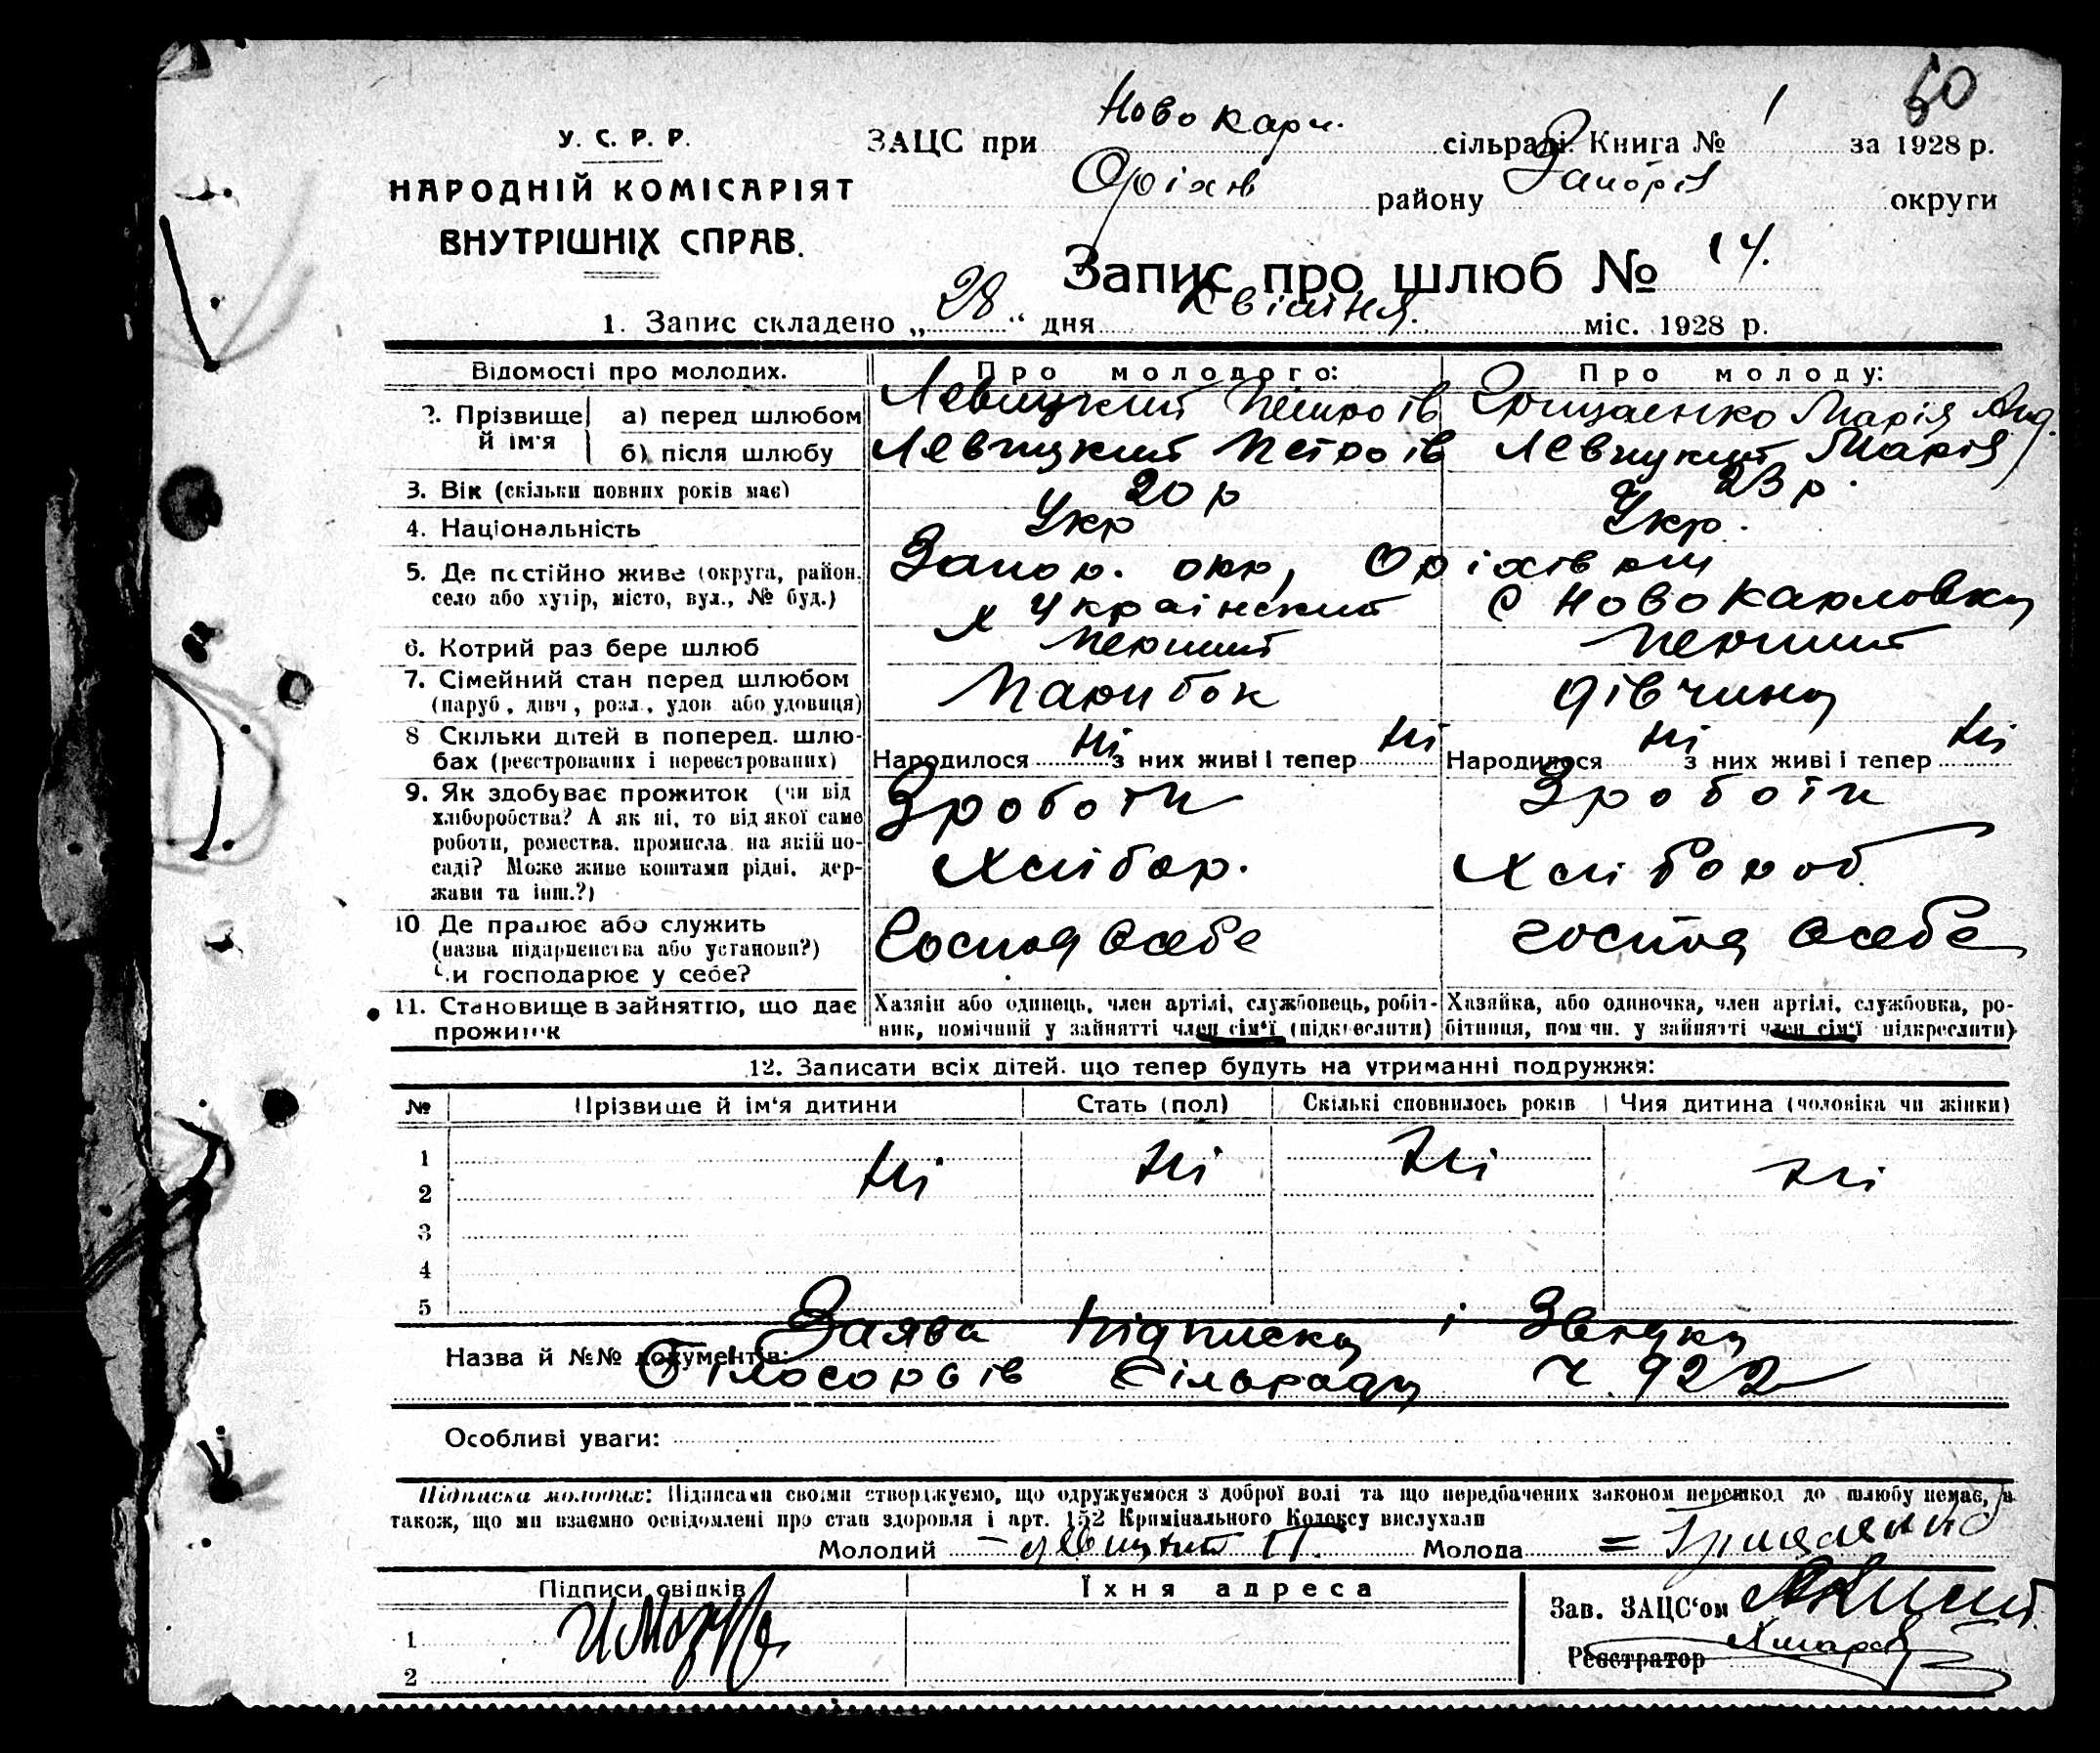 50
У. С. Р. Р.
НАРОДНІЙ КОМІСАРІЯТ
ВНУТРІШНІХ СПРАВ.
ЗАЦС при Ново Карл. сільраді. Книга № 1 за 1928 р.
Оріхів району Запоріз округи
Запис про шлюб № 14.
1. Запис складено „28“ дня Квітня. міс. 1928 р.
Відомості про молодих. Про молодого: Про молоду:
2. Прізвище й ім'я а) перед шлюбом Левицкий Петро ів Грищаенко Марія Анд.
б) після шлюбу Левицкий Петро ів Левицкий Марія
3. Вік (скільки повних років має) 20 р 23 р.
4. Національність Укр Укр.
5. Де постійно живе (округа, район, Запор. окр, Оріхів рн
село або хутір, місто, вул., № буд.) х Український с Ново Карловка
6. Котрий раз бере шлюб Перший Перший
7. Сімейний стан перед шлюбом Парубок дівчина
(паруб., дівч., розл., удов. або удовиця)
8 Скільки дітей в поперед. шлю-
бах (реєстрованих і нереєстрованих) Народилося Ні з них живі і тепер Ні Народилося Ні з них живі і тепер Ні
9. Як здобуває прожиток (чи від З роботи З роботи
хліборобства? А як ні, то від якої саме
роботи, ремества, промисла, на якій по- Хлібор. Хлібороб.
саді? Може живе коштами рідні, дер-
жави та інш.?)
10 Де працює або служить
(назва підприємства або установи?) Господ Осебе господ Осебе
Чи господарює у себе?
11. Становище в зайняттю, що дає Хазяїн або одинець, член артілі, службовець, робіт- Хазяйка, або одиночка, член артілі, службовка, ро-
прожиток ник, помічний у зайнятті член сім'ї (підкреслити) бітниця, помічн. у зайнятті член сім'ї (підкреслити)
12. Записати всіх дітей, що тепер будуть на утриманні подружжя:
№ Прізвище й ім'я дитини Стать (пол) Скількі сповнилось років Чия дитина (чоловіка чи жінки)
1 Ні Ні Ні Ні
2
3
4
5
Заява Підписка і Звідка
Назва й №№ документів:
Білогорьів Сільради ч. 922
Особливі уваги:
Підписка молодих: Підписами своїми стверджуємо, що одружуємося з доброї волі та що передбачених законом перешкод до шлюбу немає, а
також, що ми взаємно освідомлені про стан здоровля і арт. 152 Кримінального Кодексу вислухали
Молодий – Левицкий П. Молода = Грищаенко
Підписи свідків Їхня адреса
Зав. ЗАЦС'ом
1
Реєстратор
2